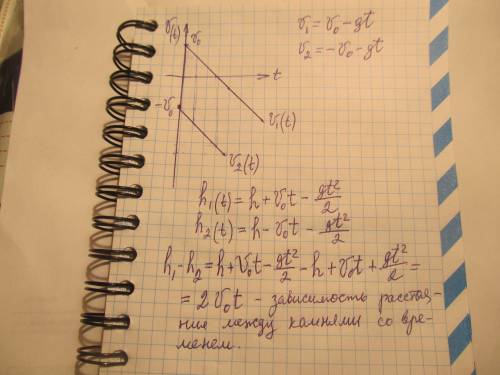 v(t)
v₀
v₁ = v₀ - gt
v₂ = -v₀ - gt
t
-v₀
v₁(t)
v₂(t)
h₁(t) = h + v₀t - gt²/2
h₂(t) = h - v₀t - gt²/2
h₁ - h₂ = h + v₀t - gt²/2 - h + v₀t + gt²/2 =
= 2v₀t - зависимость расстоя-
ния между камнями со вре-
менем.